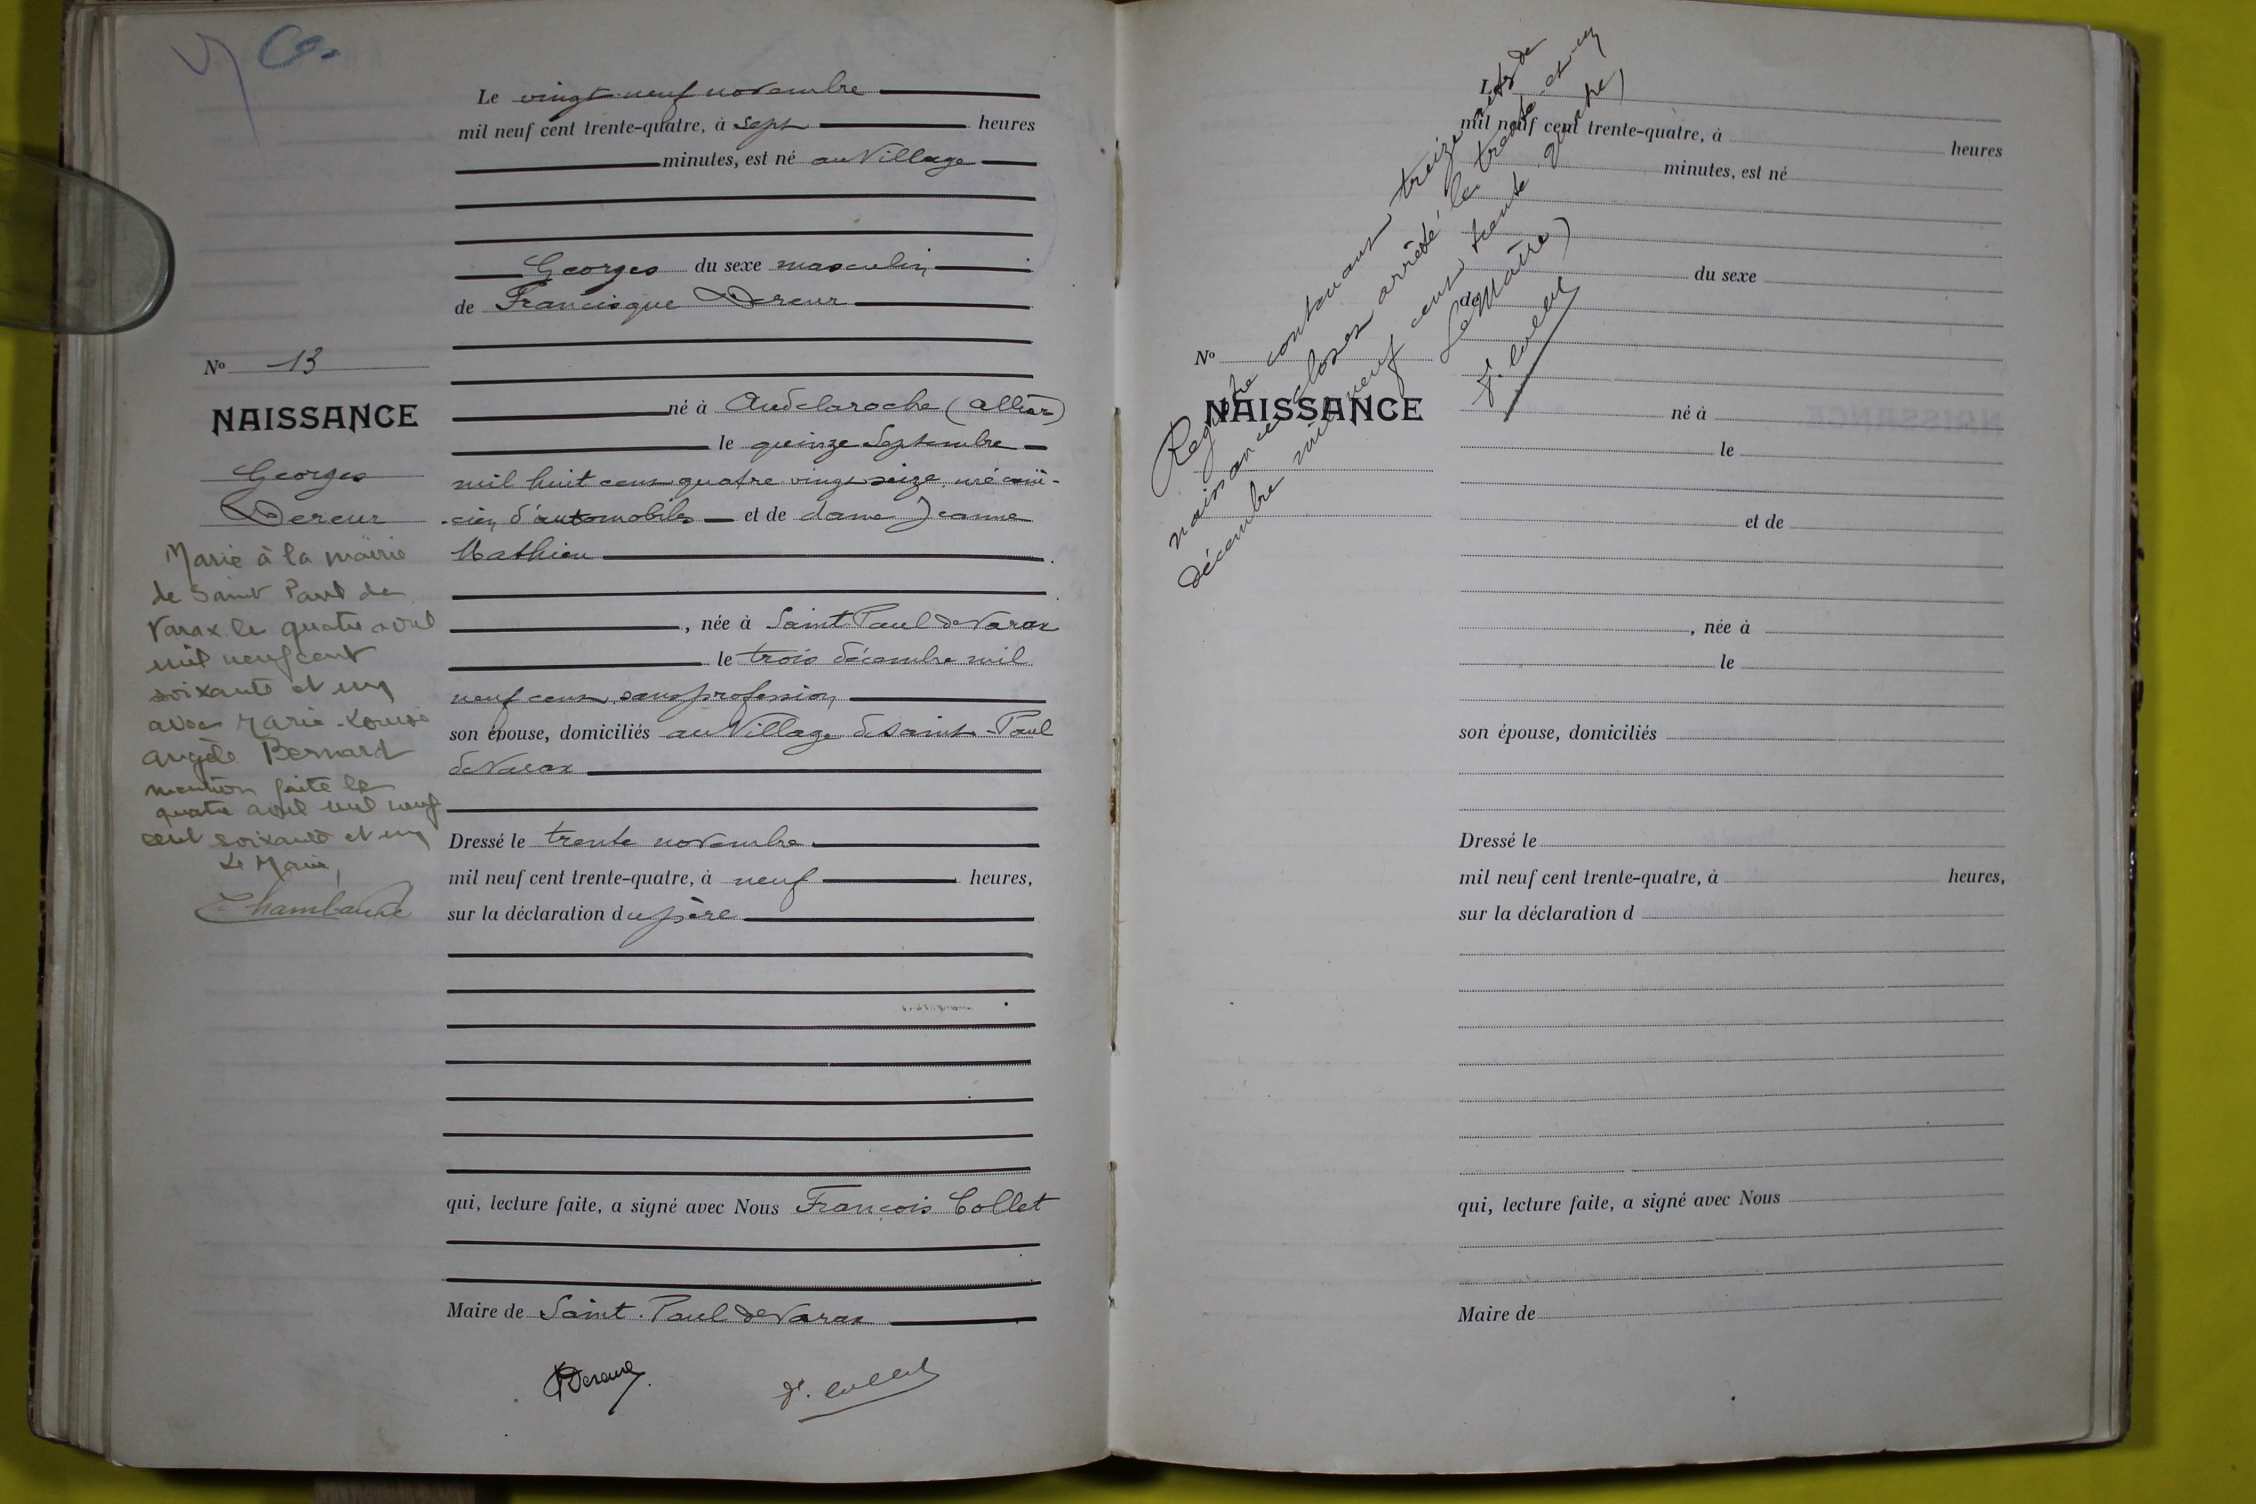 Le vingt-neuf novembre
mil neuf cent trente-quatre, à sept heures
minutes, est né au Village
Georges du sexe masculin
de Francisque Dereur
né à Andelaroche (Allier)
le quinze Septembre
mil huit cent quatre vingt seize, mécani-
cien d'automobiles et de dame Jeanne
Mathieu
, née à Saint-Paul de Varax
le trois décembre mil
neuf cent, sans profession,
son épouse, domiciliés au Village de Saint-Paul
de Varax
Dressé le trente novembre
mil neuf cent trente-quatre, à neuf heures,
sur la déclaration du père
qui, lecture faite, a signé avec Nous François Collet
Maire de Saint-Paul de Varax
Dereur
F. Collet
No 13
NAISSANCE
Georges
Dereur
Marié à la mairie
de Saint Paul de
Varax le quatre avril
mil neuf cent
soixante et un
avec Marie-Louise
Angèle Bernard
mention faite le
quatre avril mil neuf
cent soixante et un
Le Maire,
Registre contenant treize actes de
naissances clos et arrêté le trente-et-un
décembre mil neuf cent trente quatre)
Le Maire)
F. Collet
Le
mil neuf cent trente-quatre, à heures
minutes, est né
du sexe
de
No
NAISSANCE
né à
le
et de
, née à
le
son épouse, domiciliés
Dressé le
mil neuf cent trente-quatre, à heures,
sur la déclaration d
qui, lecture faite, a signé avec Nous
Maire de